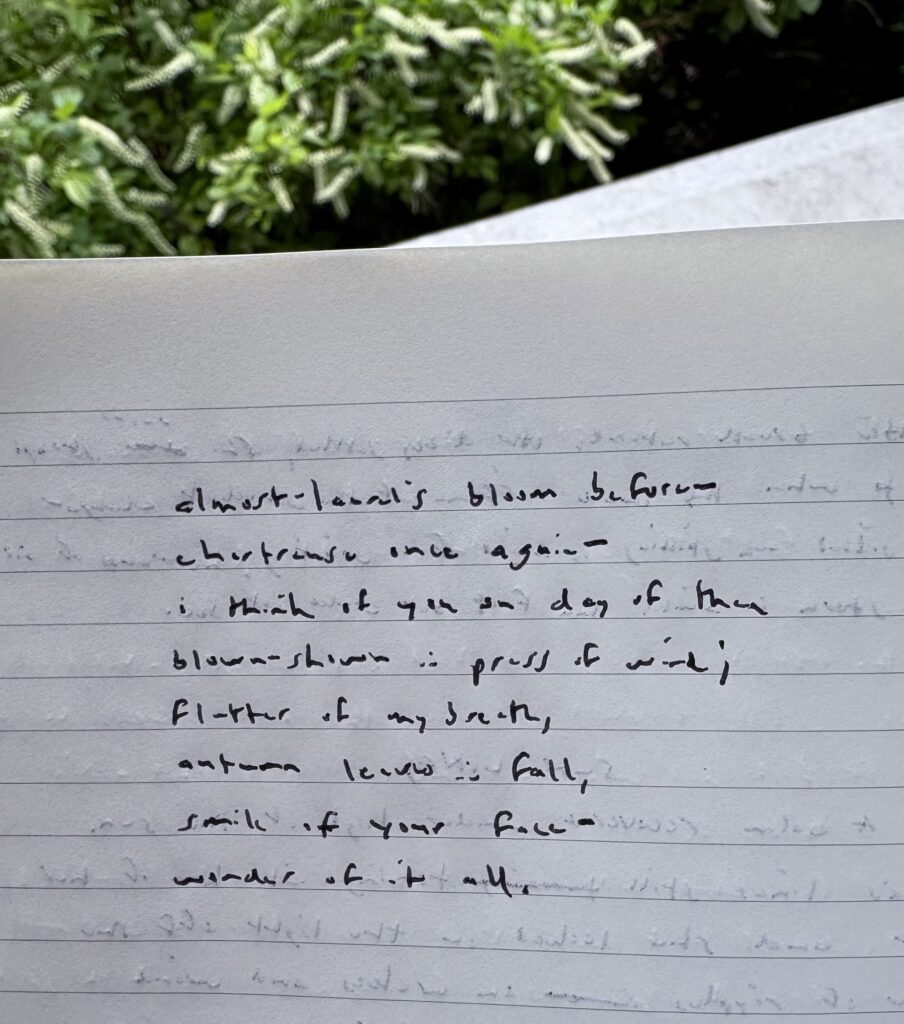 almost-laurel's bloom before—
chartreuse once again—
i think of you on day of then
blown-shown in press of wind;
flutter of my breath,
autumn leaves in fall,
smile of your face—
wonder of it all.